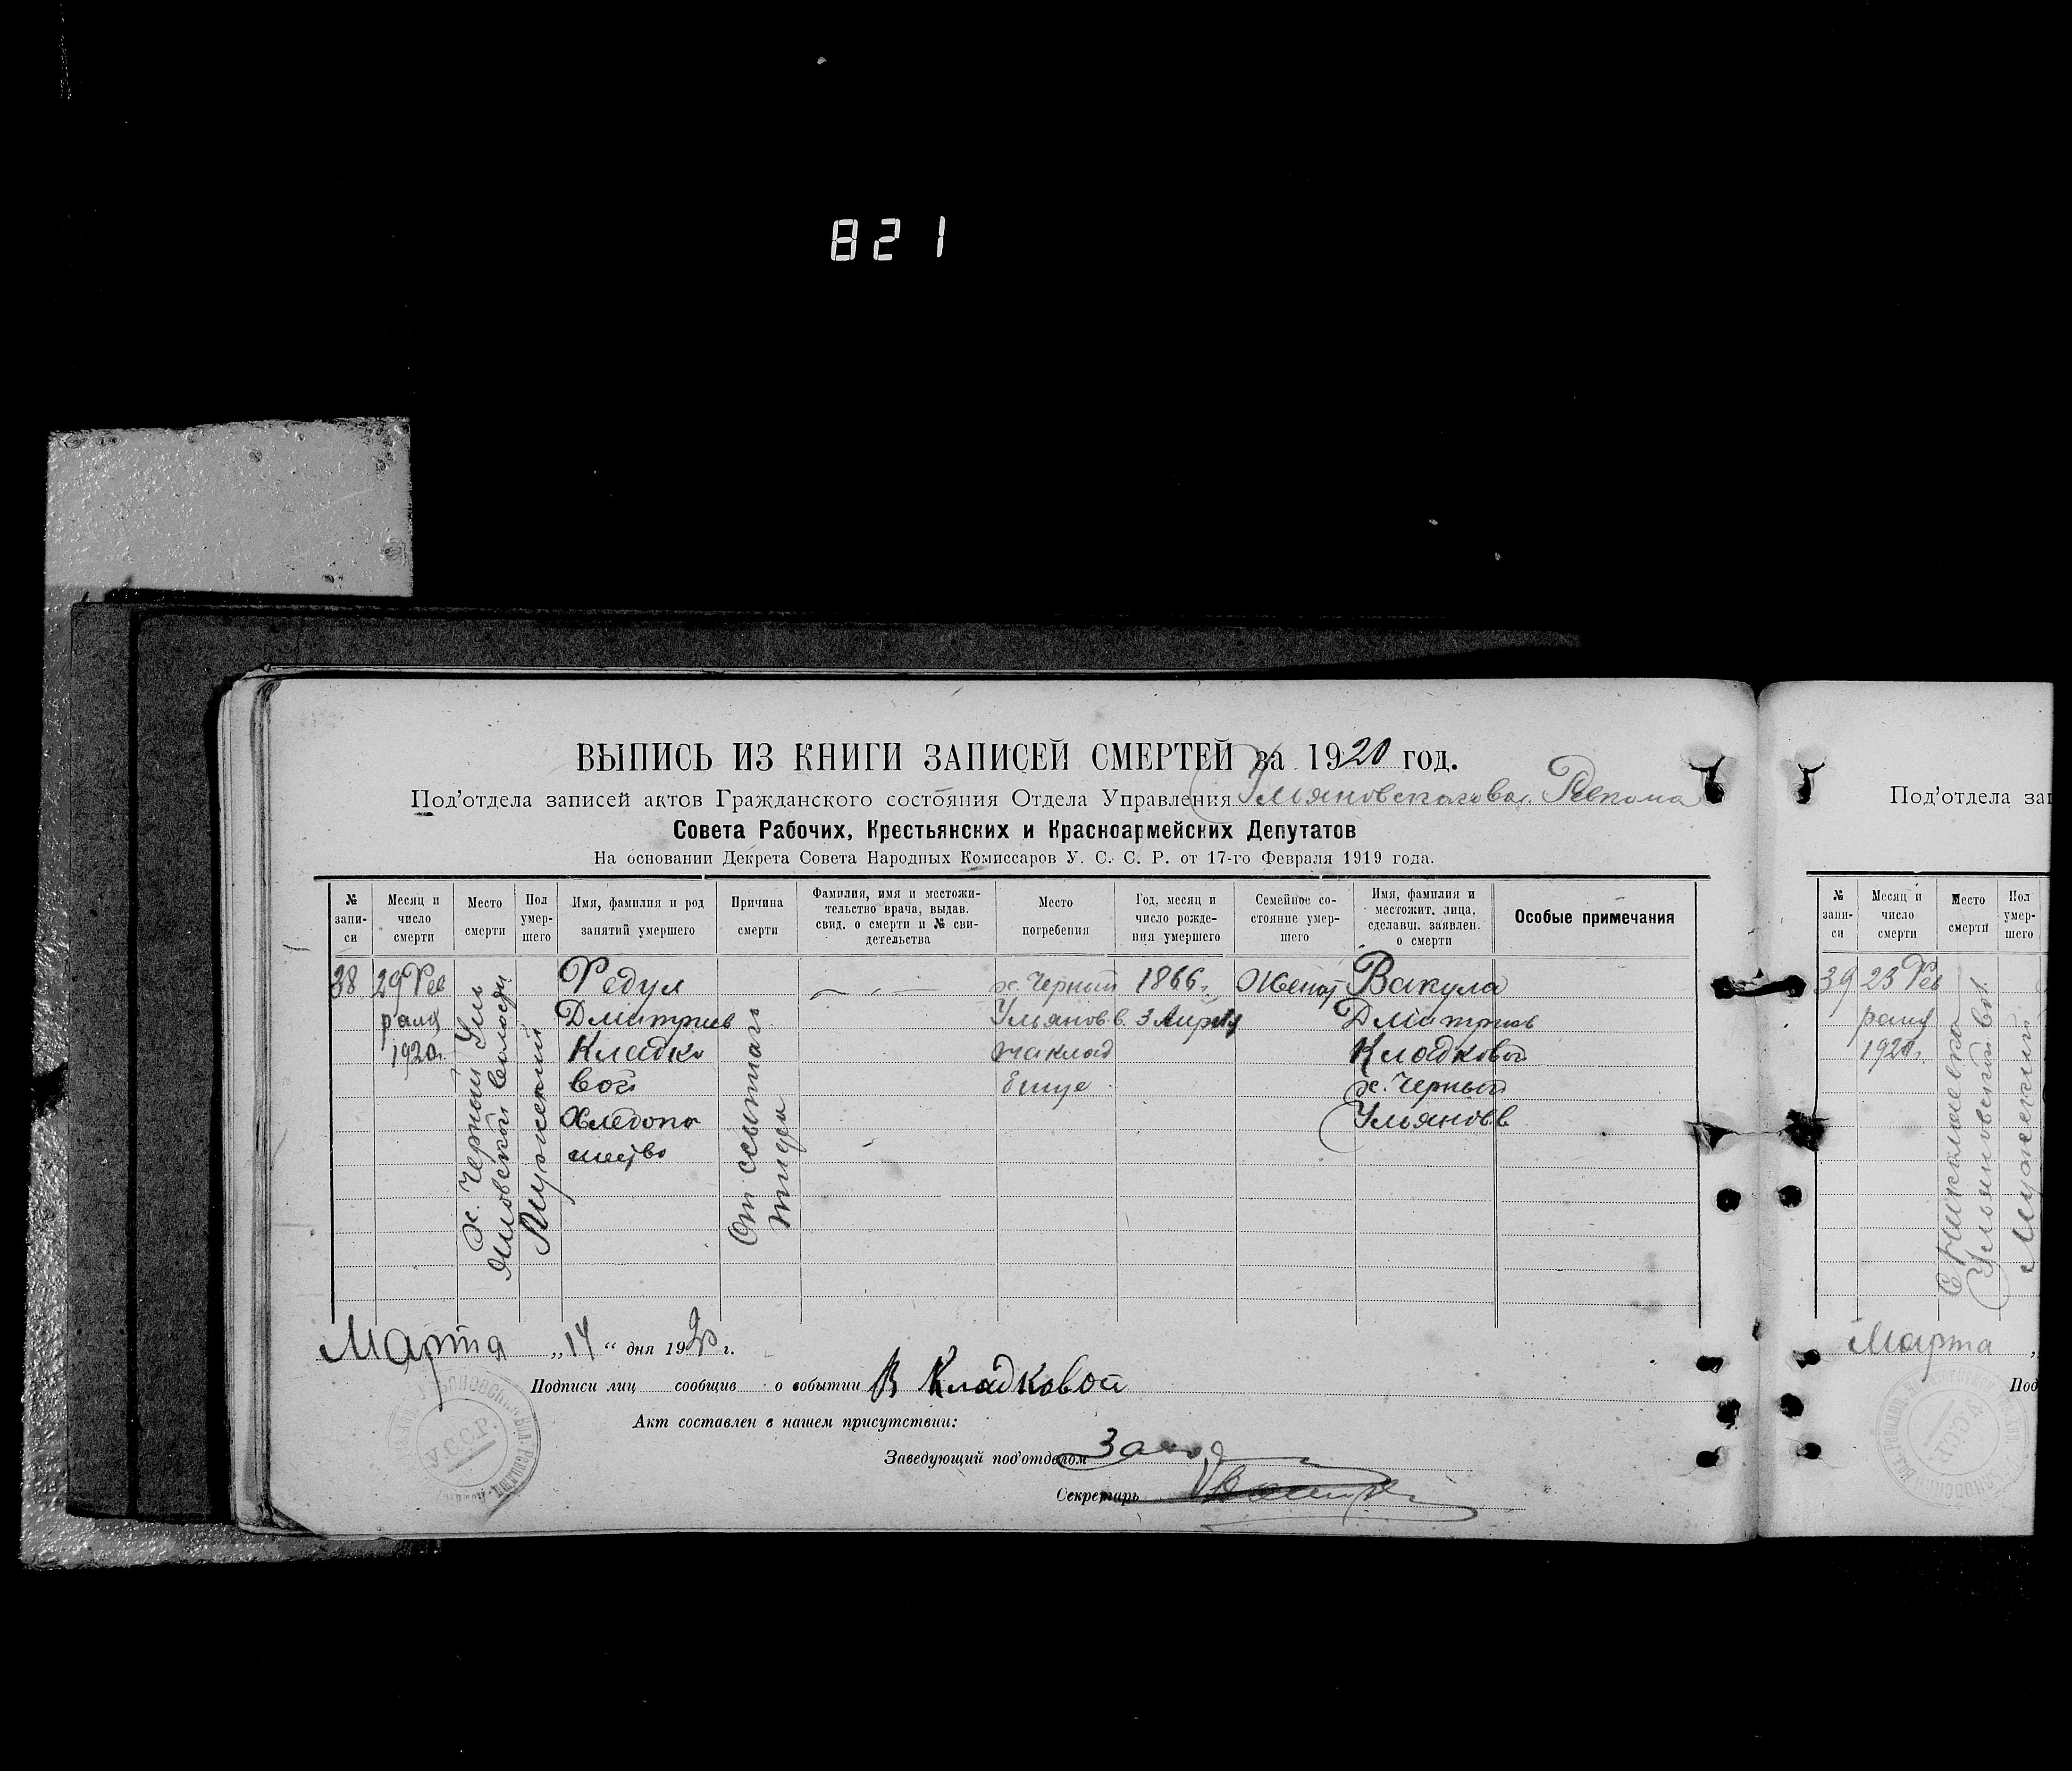 821
ВЫПИСЬ ИЗ КНИГИ ЗАПИСЕЙ СМЕРТЕЙ за 1920 год.
Под'отдела записей актов Гражданского состояния Отдела Управления Ульяновскаго Вол. Ревкома
Совета Рабочих, Крестьянских и Красноармейских Депутатов
На основании Декрета Совета Народных Комиссаров У. С. С. Р. от 17-го Февраля 1919 года.
№ запи-
си
Месяц и
число
смерти
Место
смерти
Пол
умер-
шего
Имя, фамилия и род
занятий умершего
Причина
смерти
Фамилия, имя и местожи-
тельство врача, выдав.
свид. о смерти и № сви-
детельства
Место
погребения
Год, месяц и
число рожде-
ния умершего
Семейное со-
стояние умер-
шего
Имя, фамилия и
местожит. лица,
сделавш. заявлен.
о смерти
Особые примечания
38
29 Фев
раля
1920г.
х. Черный Уль
яновской волости
Мужеский
Федул
Дмитриев
Кладко
вой
Хлебопа
шество
От сыпнаго
тифа
х. Черный
Ульянов. в.
на клад
бище
1866 г.
3 Апреля
Женат
Вакула
Дмитриев
Кладковой
х. Черный
Ульянов в
Марта „14“ дня 1920 г.
Подписи лиц сообщив о событии В Кладковой
Акт составлен в нашем присутствии:
Заведующий под'отделом
Секретарь
У.С.С.Р.
Под'отдела за
№
запи-
си
Месяц и
число
смерти
Место
смерти
Пол
умер-
шего
39
23 Фев
раля
1920г.
С Николаевка
Ульяновской вол.
Мужеский
Марта „
Под
У.С.С.Р.